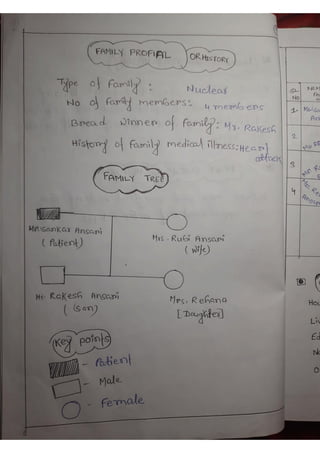 FAMILY PROFIAL OR HISTORY
Type of family : Nuclear
No of family members: 4 members
Bread winner of family: Mr. Rakesh
History of family medical illness: Heart attack
FAMILY TREE
Ansari
(Patient)
Mrs. Rubi Ansari
(wife)
Mr Rakesh Ansari
(son)
Mrs. Rehana
[Daughter]
Key points
- Patient
- Male
- Female
SL
NO
1.
2
3
4